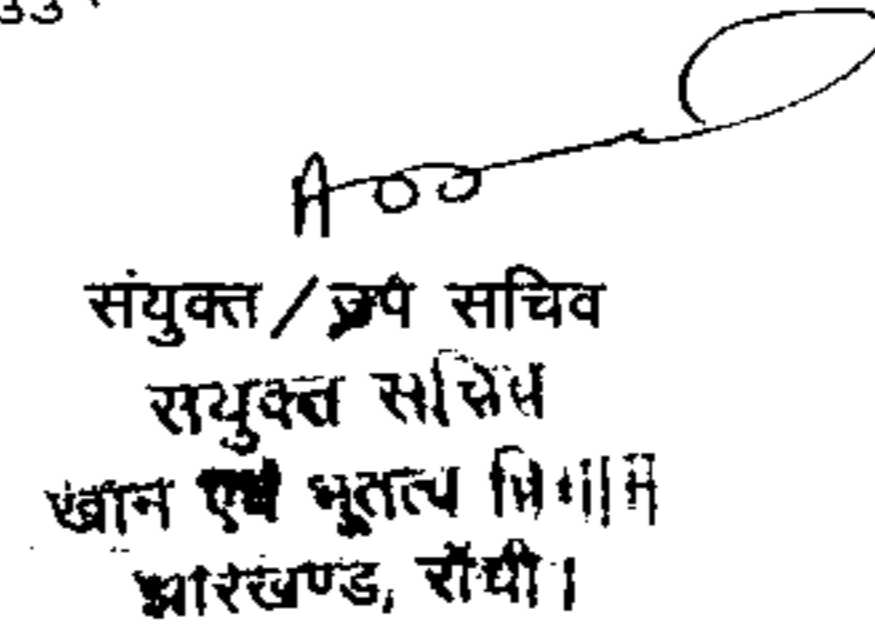 संयुक्त / उप सचिव
संयुक्त सचिव
खान एवं भूतत्व विभाग
झारखण्ड, राँची।